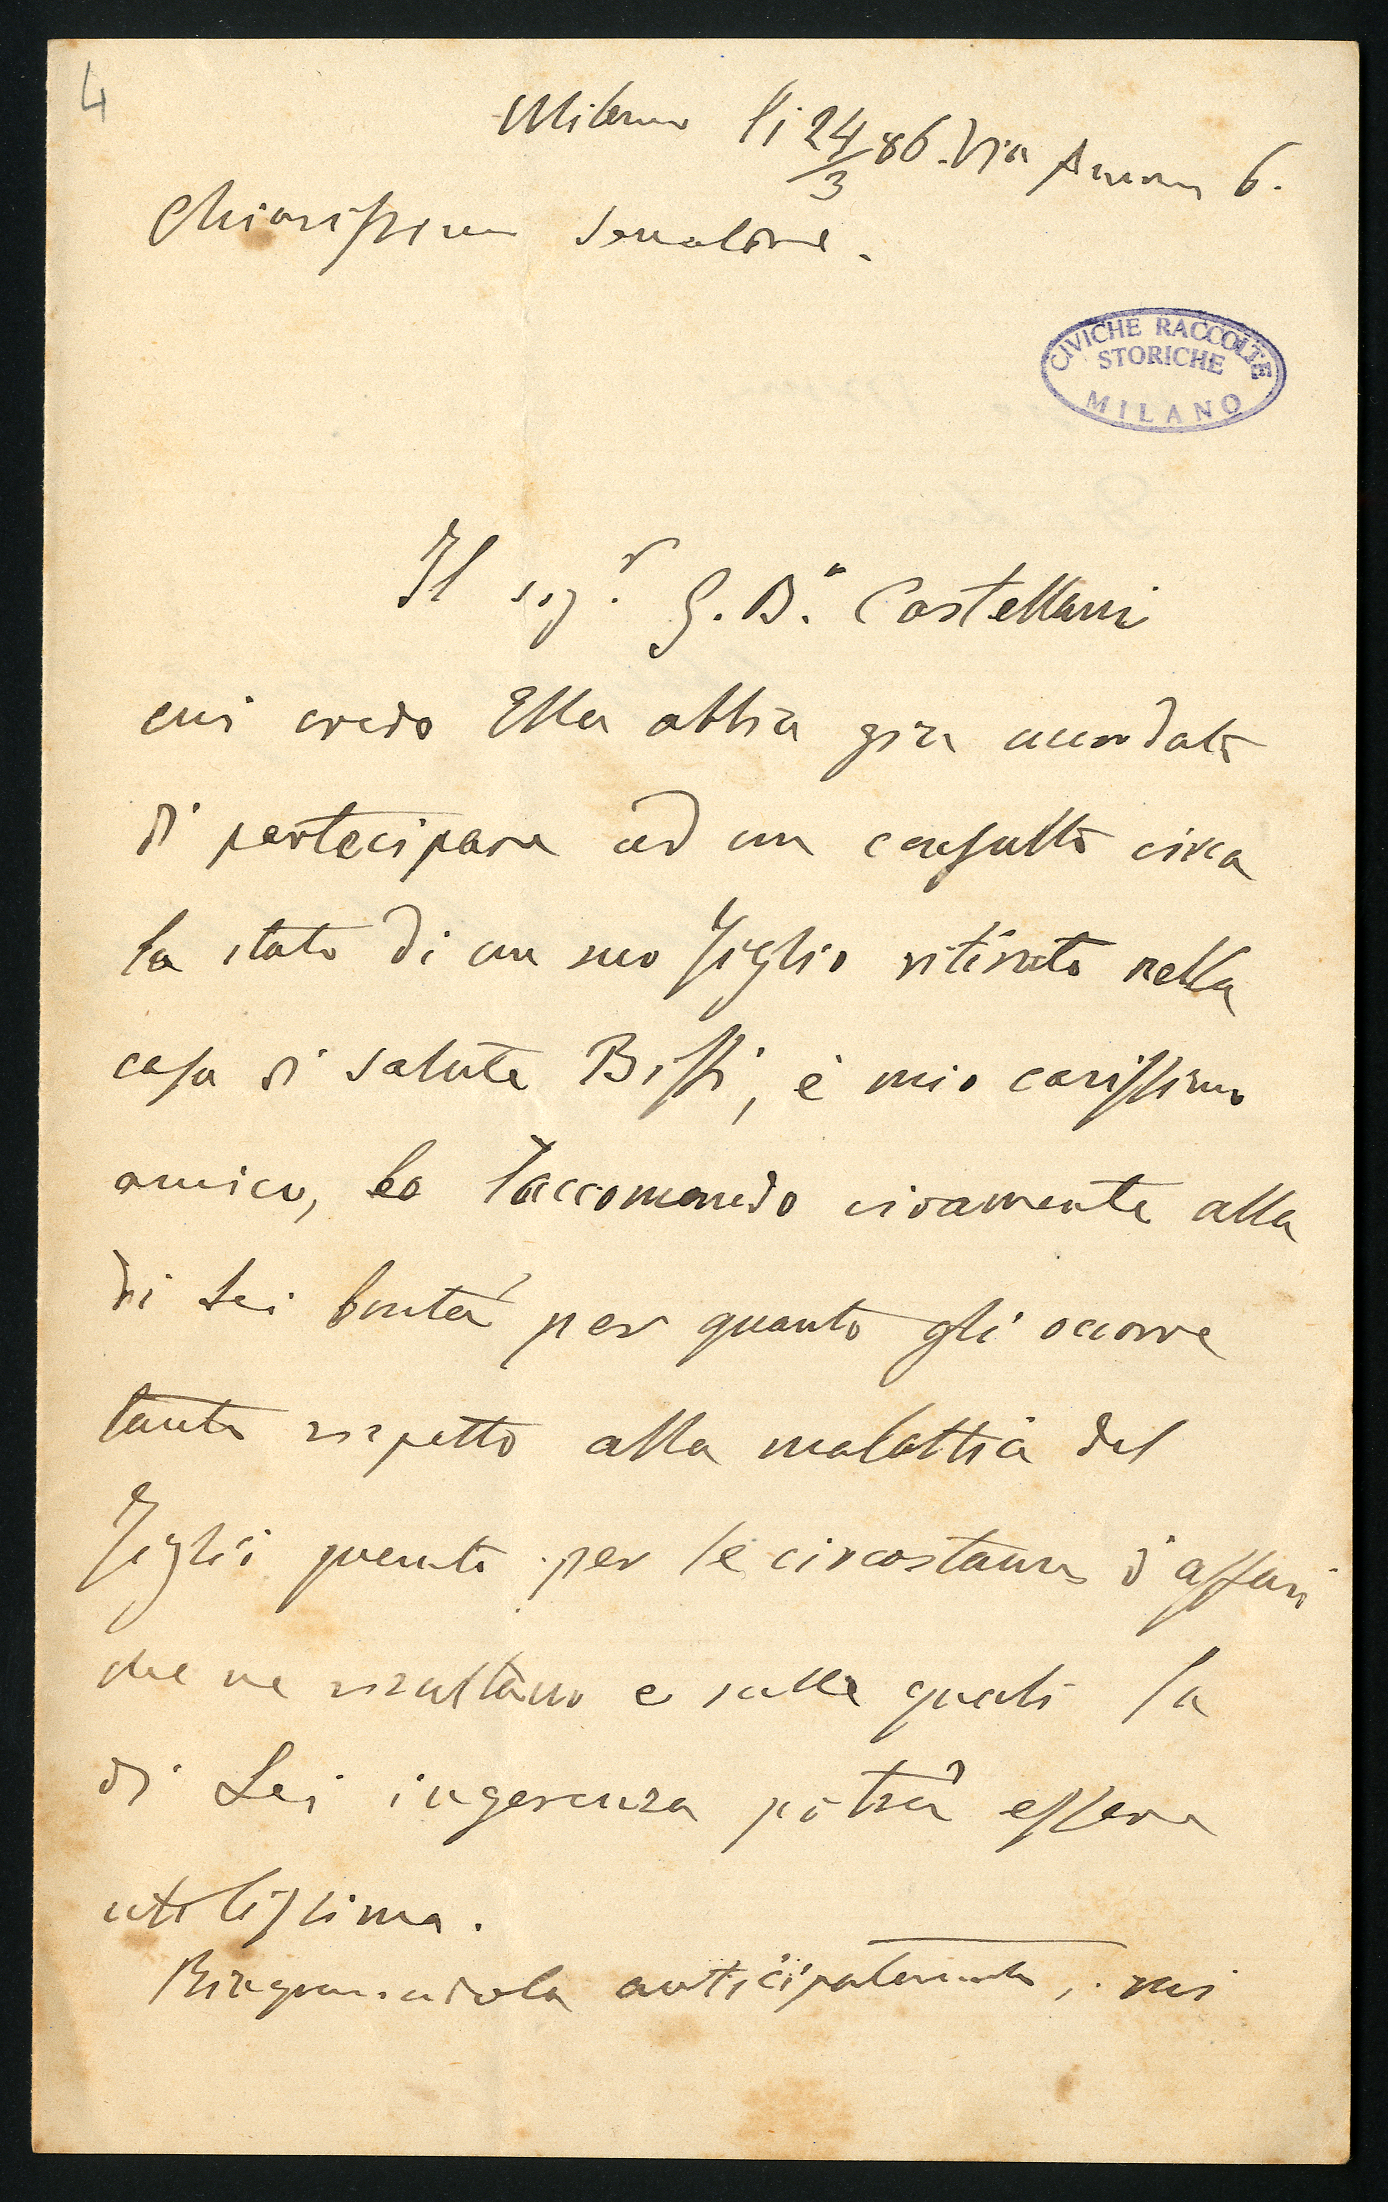 4
Milano li 24/3 86. Via Annun 6.
Chiarissimo Senatore.
CIVICHE RACCOLTE
STORICHE
MILANO
Il sigr. G. Ba. Castellani
cui credo Ella abbia già accordato
di partecipare ad un consulto circa
lo stato di un suo figlio ritirato nella
casa di salute Biffi, è mio carissimo
amico, lo raccomando vivamente alla
di Lei bontà per quanto gli occorre
tanto rispetto alla malattia del
figlio quanto per le circostanze d'affari
che ne risultano e sulle quali la
di Lei ingerenza potrà essere
utilissima.
Ringraziandola anticipatamente, mi